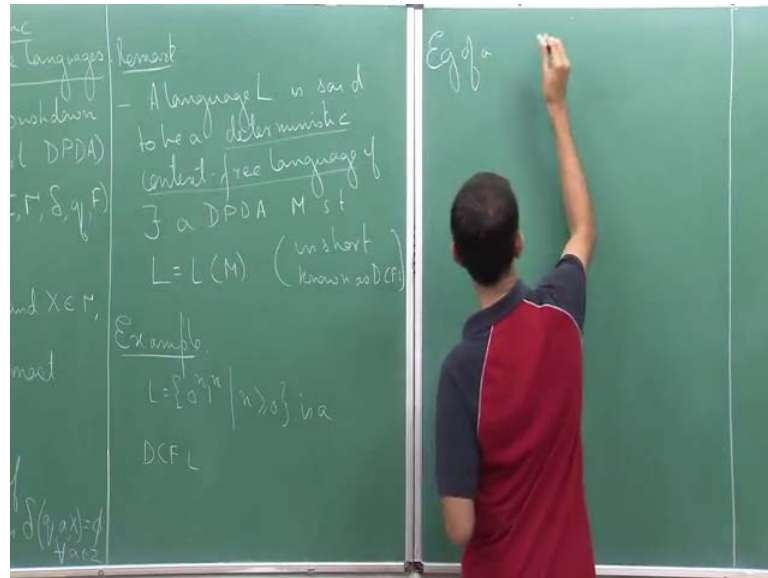 nc
Languages
pushdown
DPDA)
Σ, Γ, δ, q, F)
and X ∈ Γ,
most
δ(q,a,x)=ϕ
∀a∈Σ
Remark
- A language L is said
to be a deterministic
context-free language if
∃ a DPDA M s t
L = L(M) (in short
known as DCFL)
Example.
L={0ⁿ1ⁿ | n≥0} is a
DCFL
Eg of a